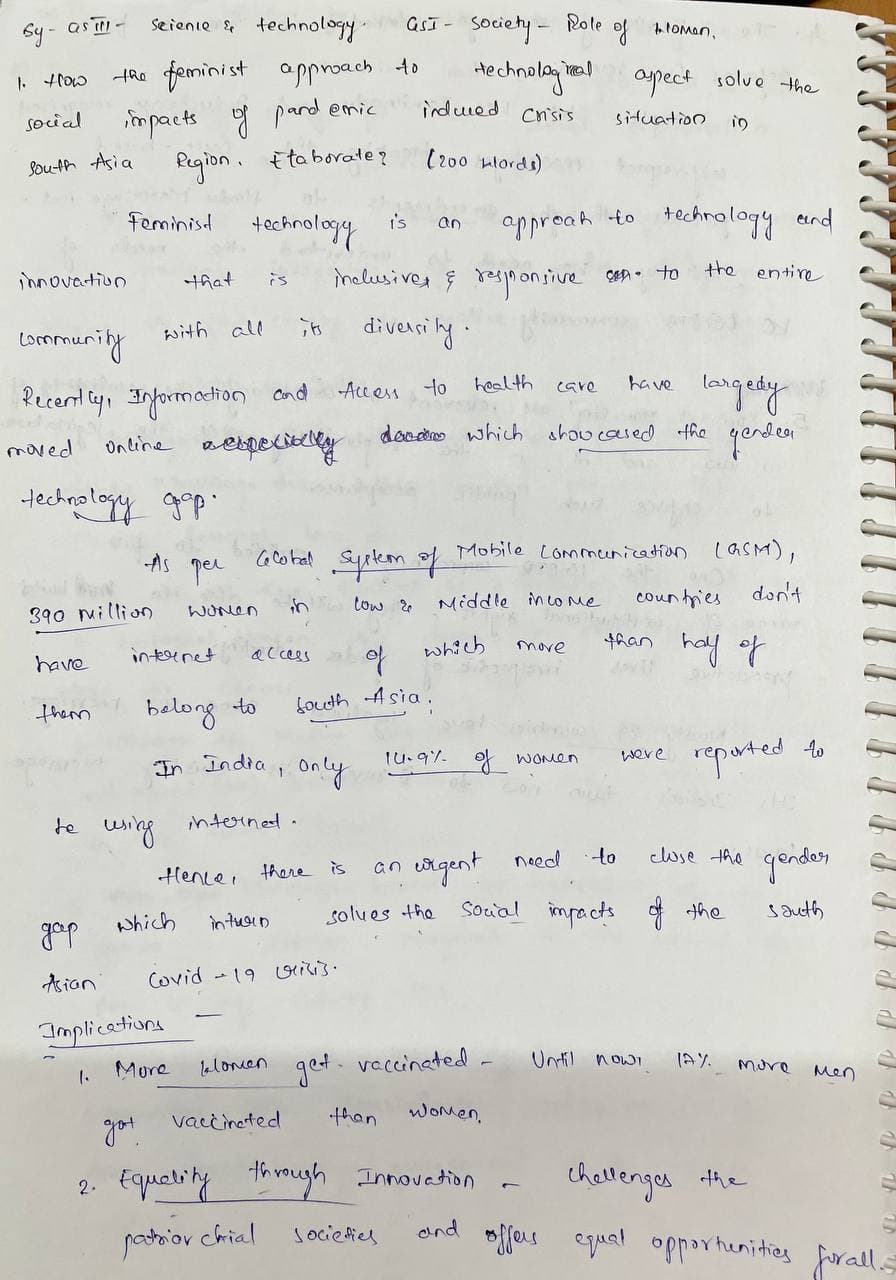 Sy - GS III - Science & technology. GS I - Society - Role of Women.
1. How the feminist approach to technological aspect solve the
social impacts of pandemic induced crisis situation in
South Asia Region. Elaborate? (200 words)
Feminist technology is an approah to technology and
innovation that is inclusive, & responsive to the entire
community with all its diversity.
Recently, Information and Access to health care have largedy
moved online which showcased the gender
technology gap.
As per Global System of Mobile Communication (GSM),
390 million women in low & Middle income countries don't
have internet access of which more than half of
them belong to South Asia.
In India, only 14.9% of women were reported to
be using internet.
Hence, there is an urgent need to close the gender
gap which inturn solves the social impacts of the south
Asian Covid-19 crisis.
Implications -
1. More Women get vaccinated - Until now, 17% more men
got vaccineted than women.
2. Equality through Innovation - challenges the
patriorchial societies and offers equal opportunities forall.